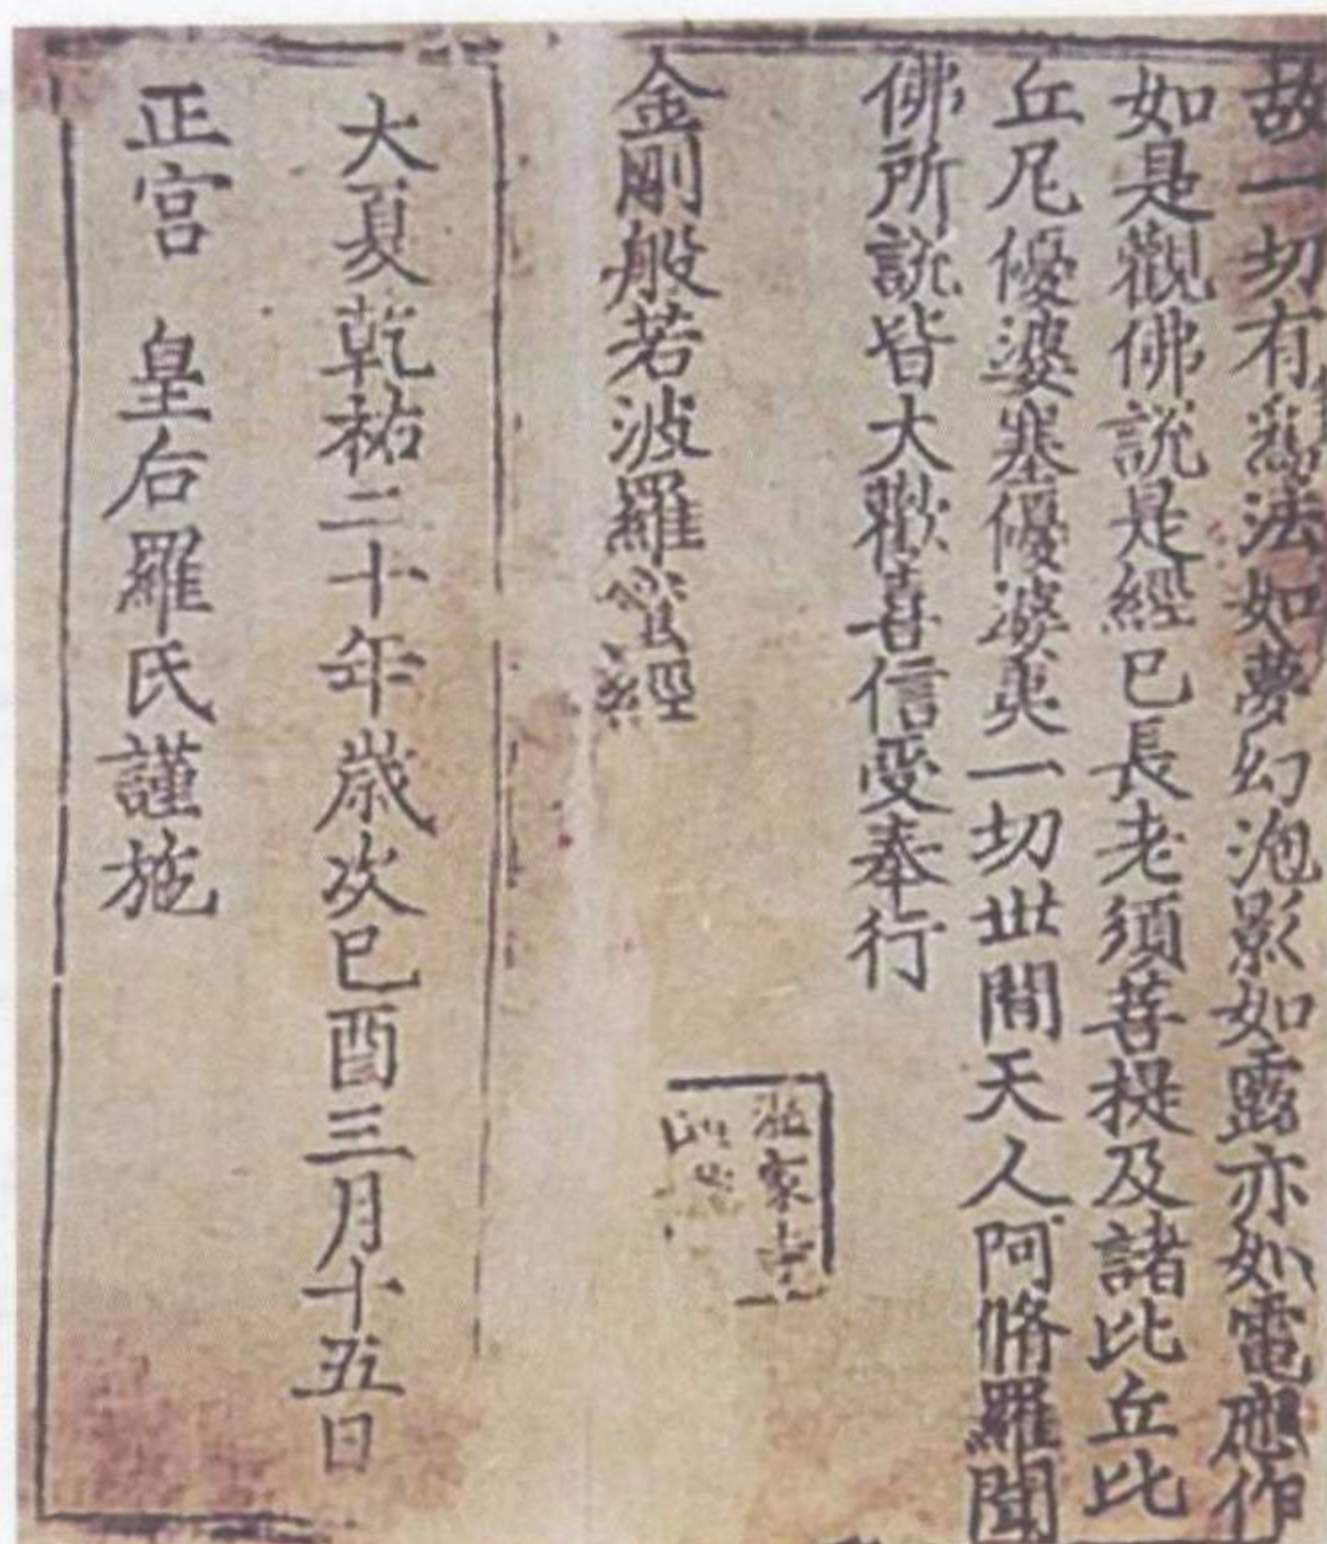 故一切有爲法如夢幻泡影如露亦如電應作
如是觀佛說是經已長老須菩提及諸比丘比
丘尼優婆塞優婆夷一切世間天人阿脩羅聞
佛所說皆大歡喜信受奉行
金剛般若波羅蜜經
大夏乾祐二十年歲次己酉三月十五日
正宮 皇后羅氏謹施